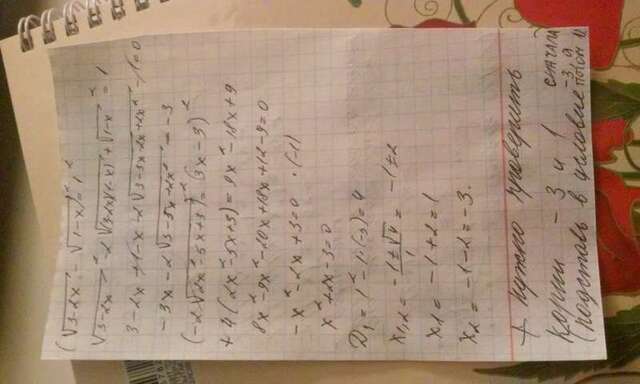 (√3-2x - √1-x)² = 1²
√3-2x² - 2√(3-2x)(1-x) + √1-x² = 1
3-2x+1-x-2√3-3x-2x+2x² -1=0
-3x-2√3-5x+2x² = -3
(-2√2x²-5x+3)² = (3x-3)²
+4(2x²-5x+3) = 9x²-18x+9
8x²-9x²-20x+18x+12-9=0
-x²-2x+3=0 ·(-1)
x²+2x-3=0
D₁ = 1²-1·(-3)=4
x₁,₂ = -1±√4/1 = -1±2
x₁ = -1+2=1
x₂ = -1-2=-3.
+ Нужно проверить
корни -3 и 1
(подставь в условие сначала -3, а потом 1)